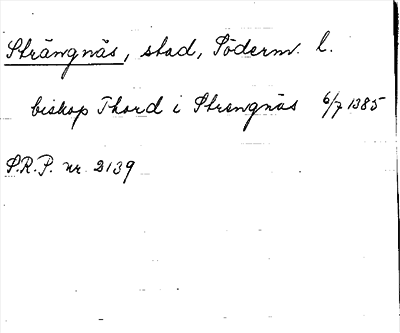 Strängnäs, stad, Söderm. l.
biskop Thord i Strengnäs 6/7 1385
S.R.P. nr. 2139